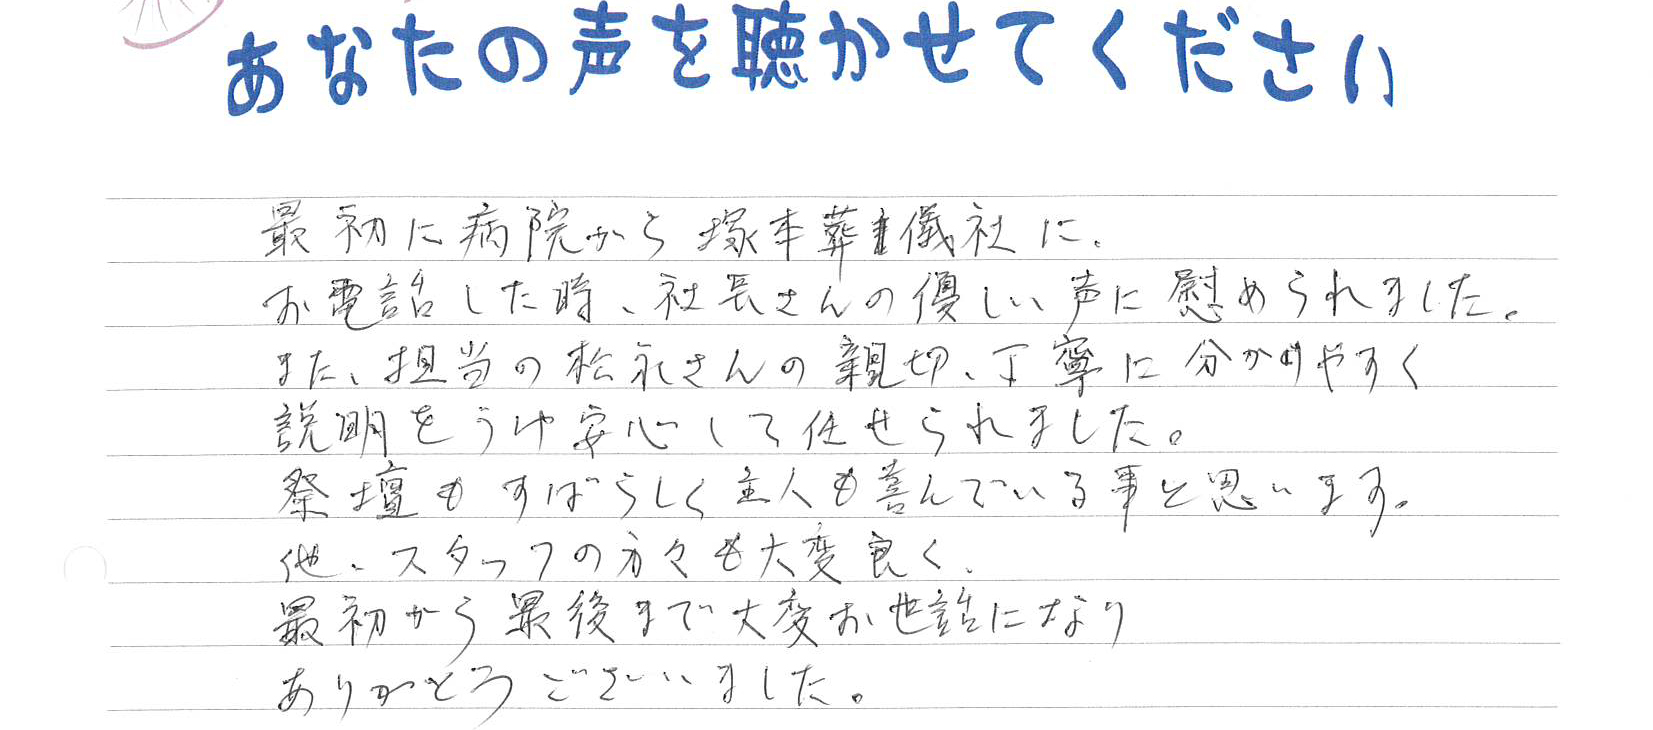 あなたの声を聴かせてください
最初に病院から塚本葬儀社に、
お電話した時、社長さんの優しい声に慰められました。
また、担当の松永さんの親切、丁寧に分かりやすく
説明をうけ安心して任せられました。
祭壇もすばらしく主人も喜んでいる事と思います。
他、スタッフの方々も大変良く、
最初から最後まで大変お世話になり
ありがとうございました。